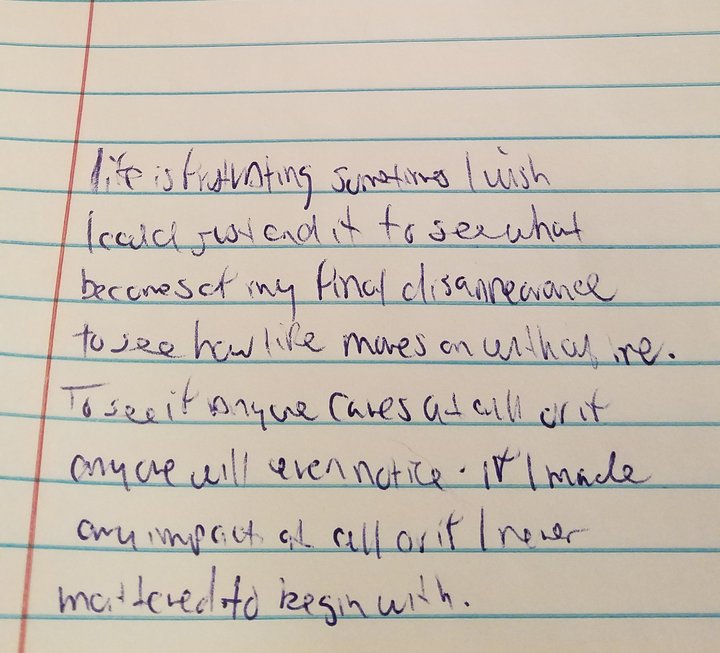 life is frustrating sometimes I wish
I could just end it to see what
becomes of my final disappearance
to see how life moves on without me.
To see if anyone cares at all or if
anyone will even notice. if I made
any impact at all or if I never
mattered to begin with.